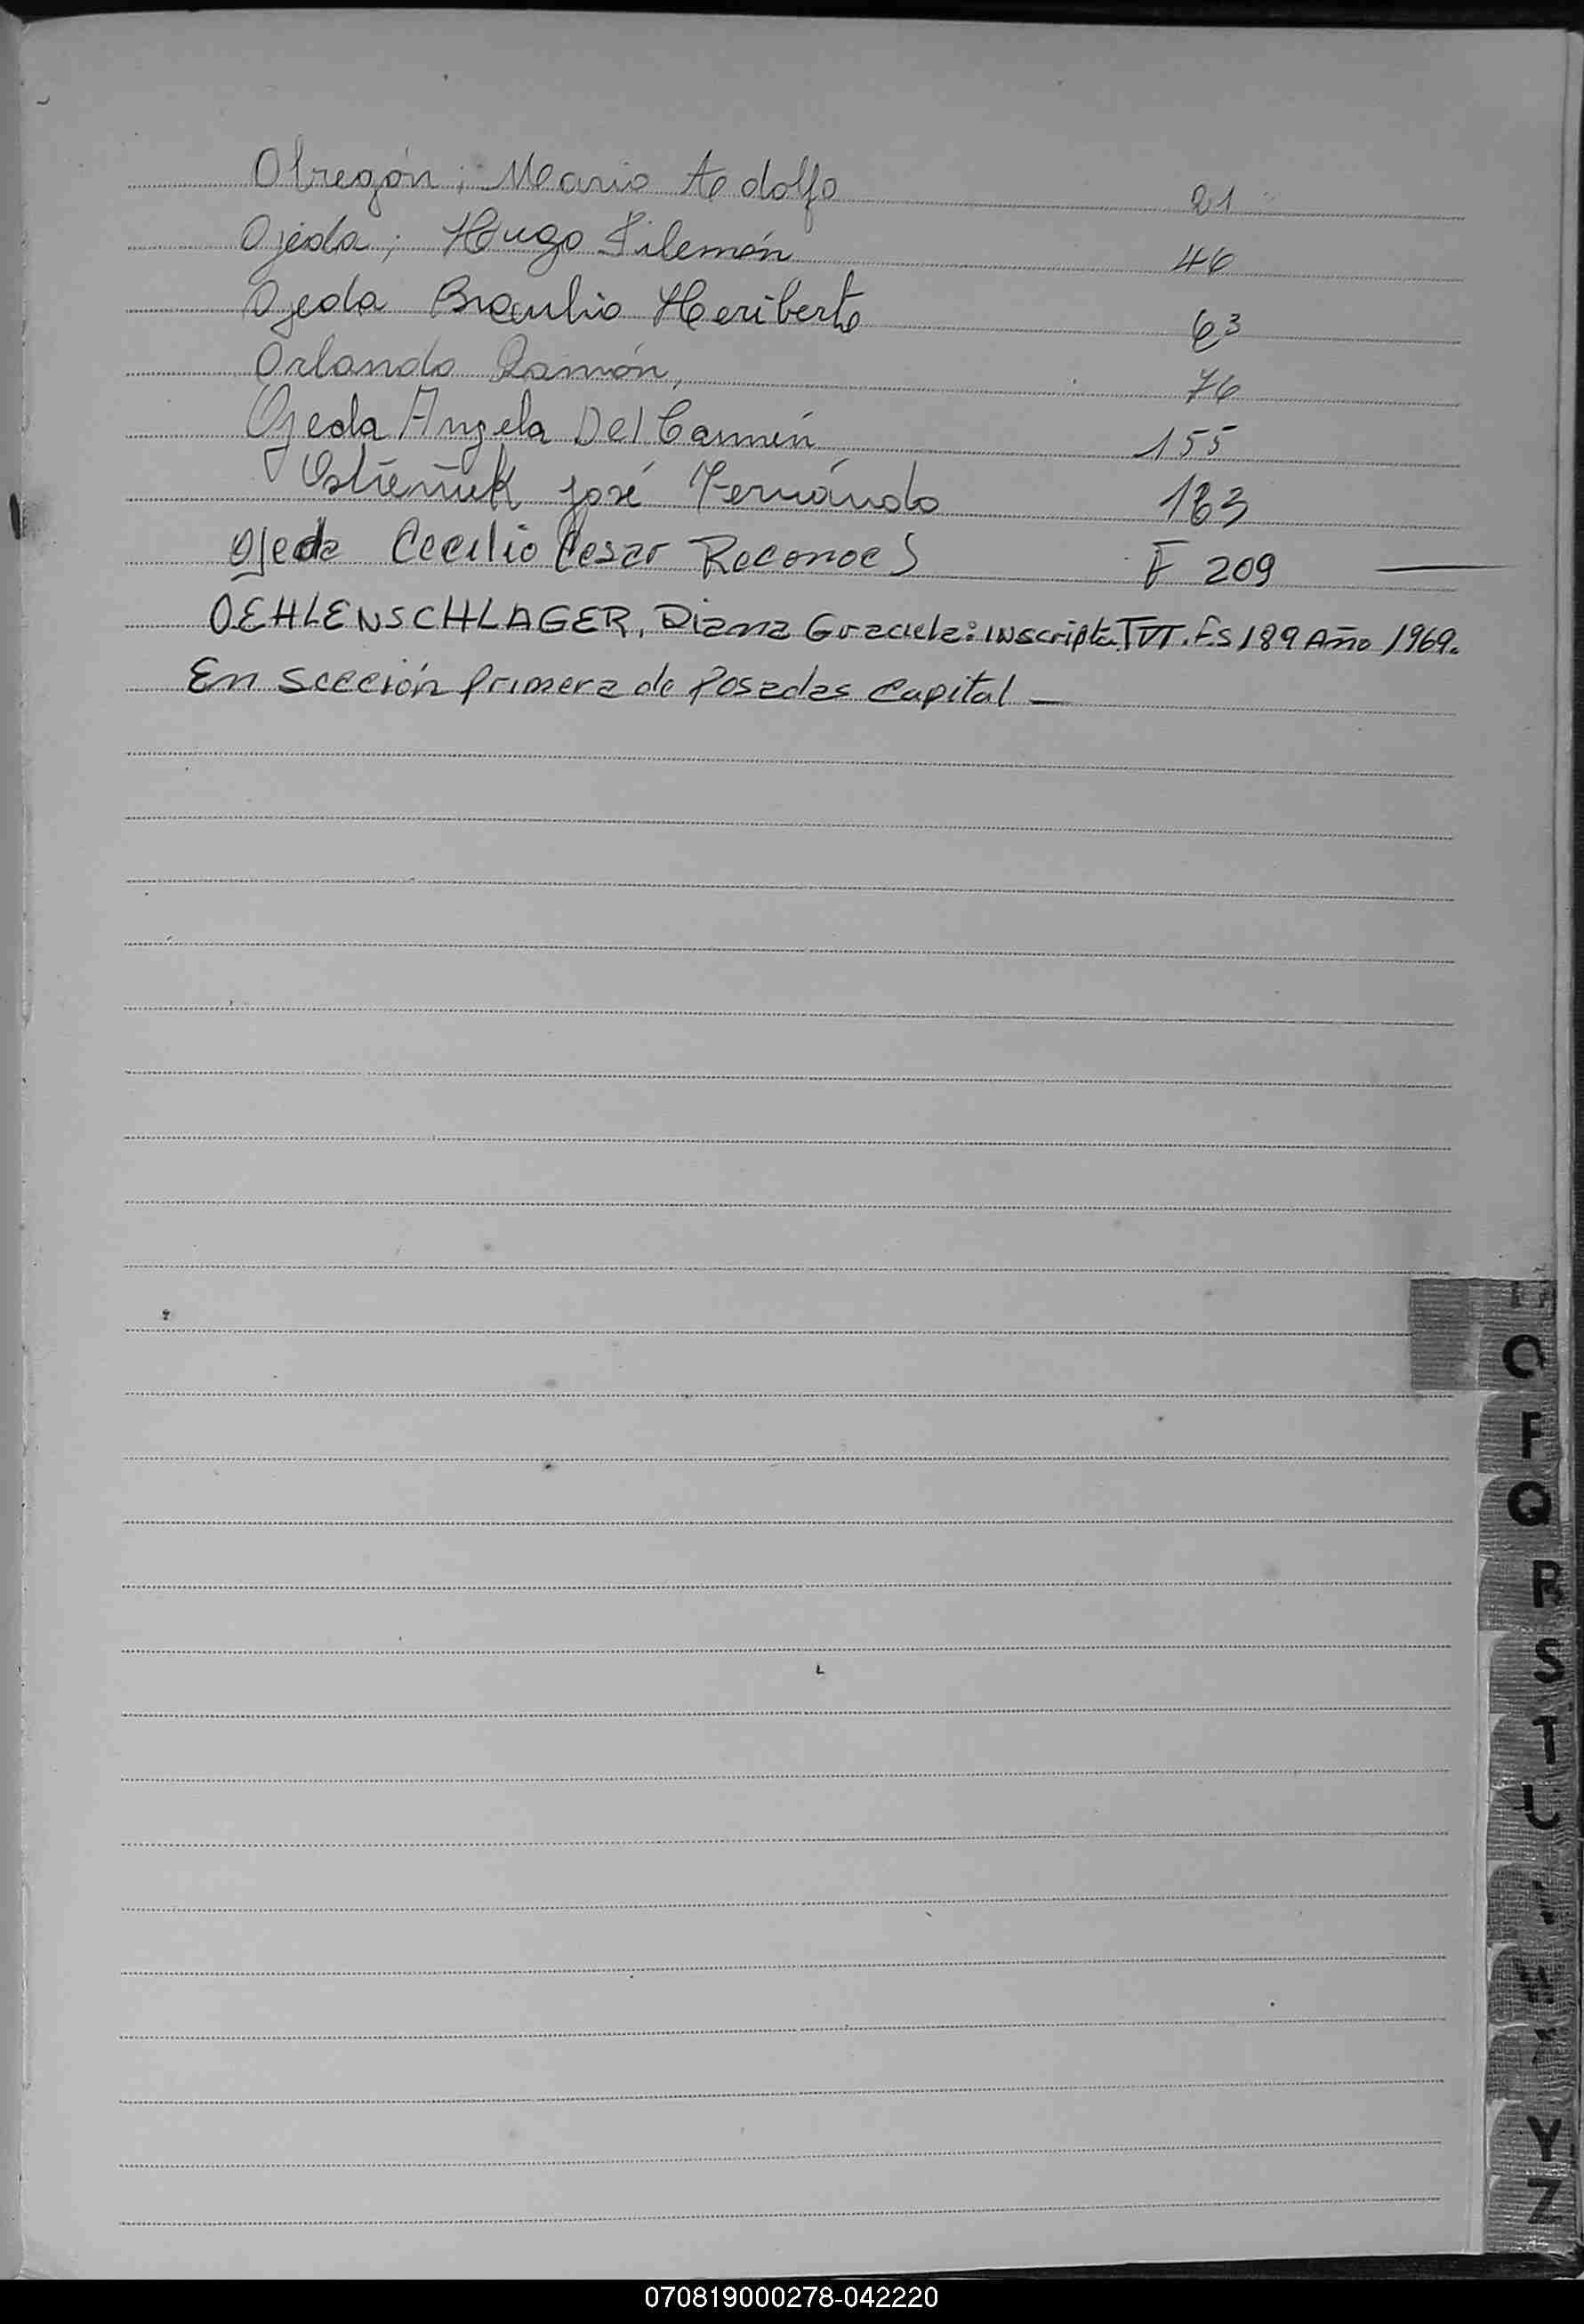 Obregón; Mario Adolfo 21
Ojeda; Hugo Filemón 46
Ojeda Braulio Heriberto 63
Orlando Ramón, 76
Ojeda Angela Del Carmen 155
José Fernándo 183
Ojeda Cecilio Cesar Reconoc F 209
OEHLENSCHLAGER, Diana Graciela: Inscripta Fs 189 Año 1969.
En Sección Primera de Posadas Capital —
O
Q
R
S
T
Y
Z
070819000278-042220